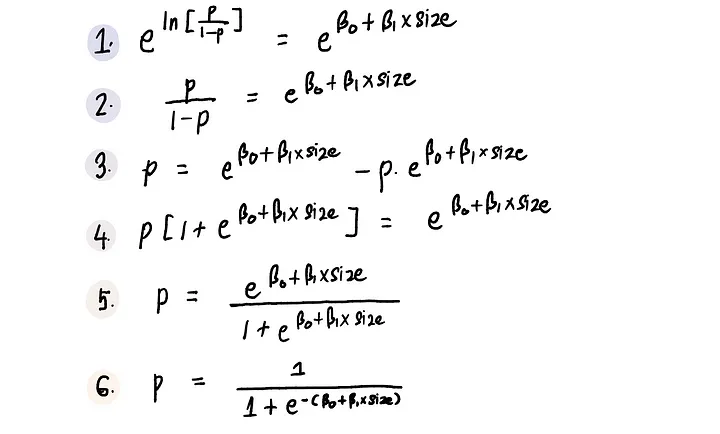 1. e^(ln[p/(1-p)]) = e^(β₀ + β₁ × size)
2. p/(1-p) = e^(β₀ + β₁ × size)
3. p = e^(β₀ + β₁ × size) - p. e^(β₀ + β₁ × size)
4. p [1 + e^(β₀ + β₁ × size)] = e^(β₀ + β₁ × size)
5. p = e^(β₀ + β₁ × size) / (1 + e^(β₀ + β₁ × size))
6. p = 1 / (1 + e^(-(β₀ + β₁ × size)))